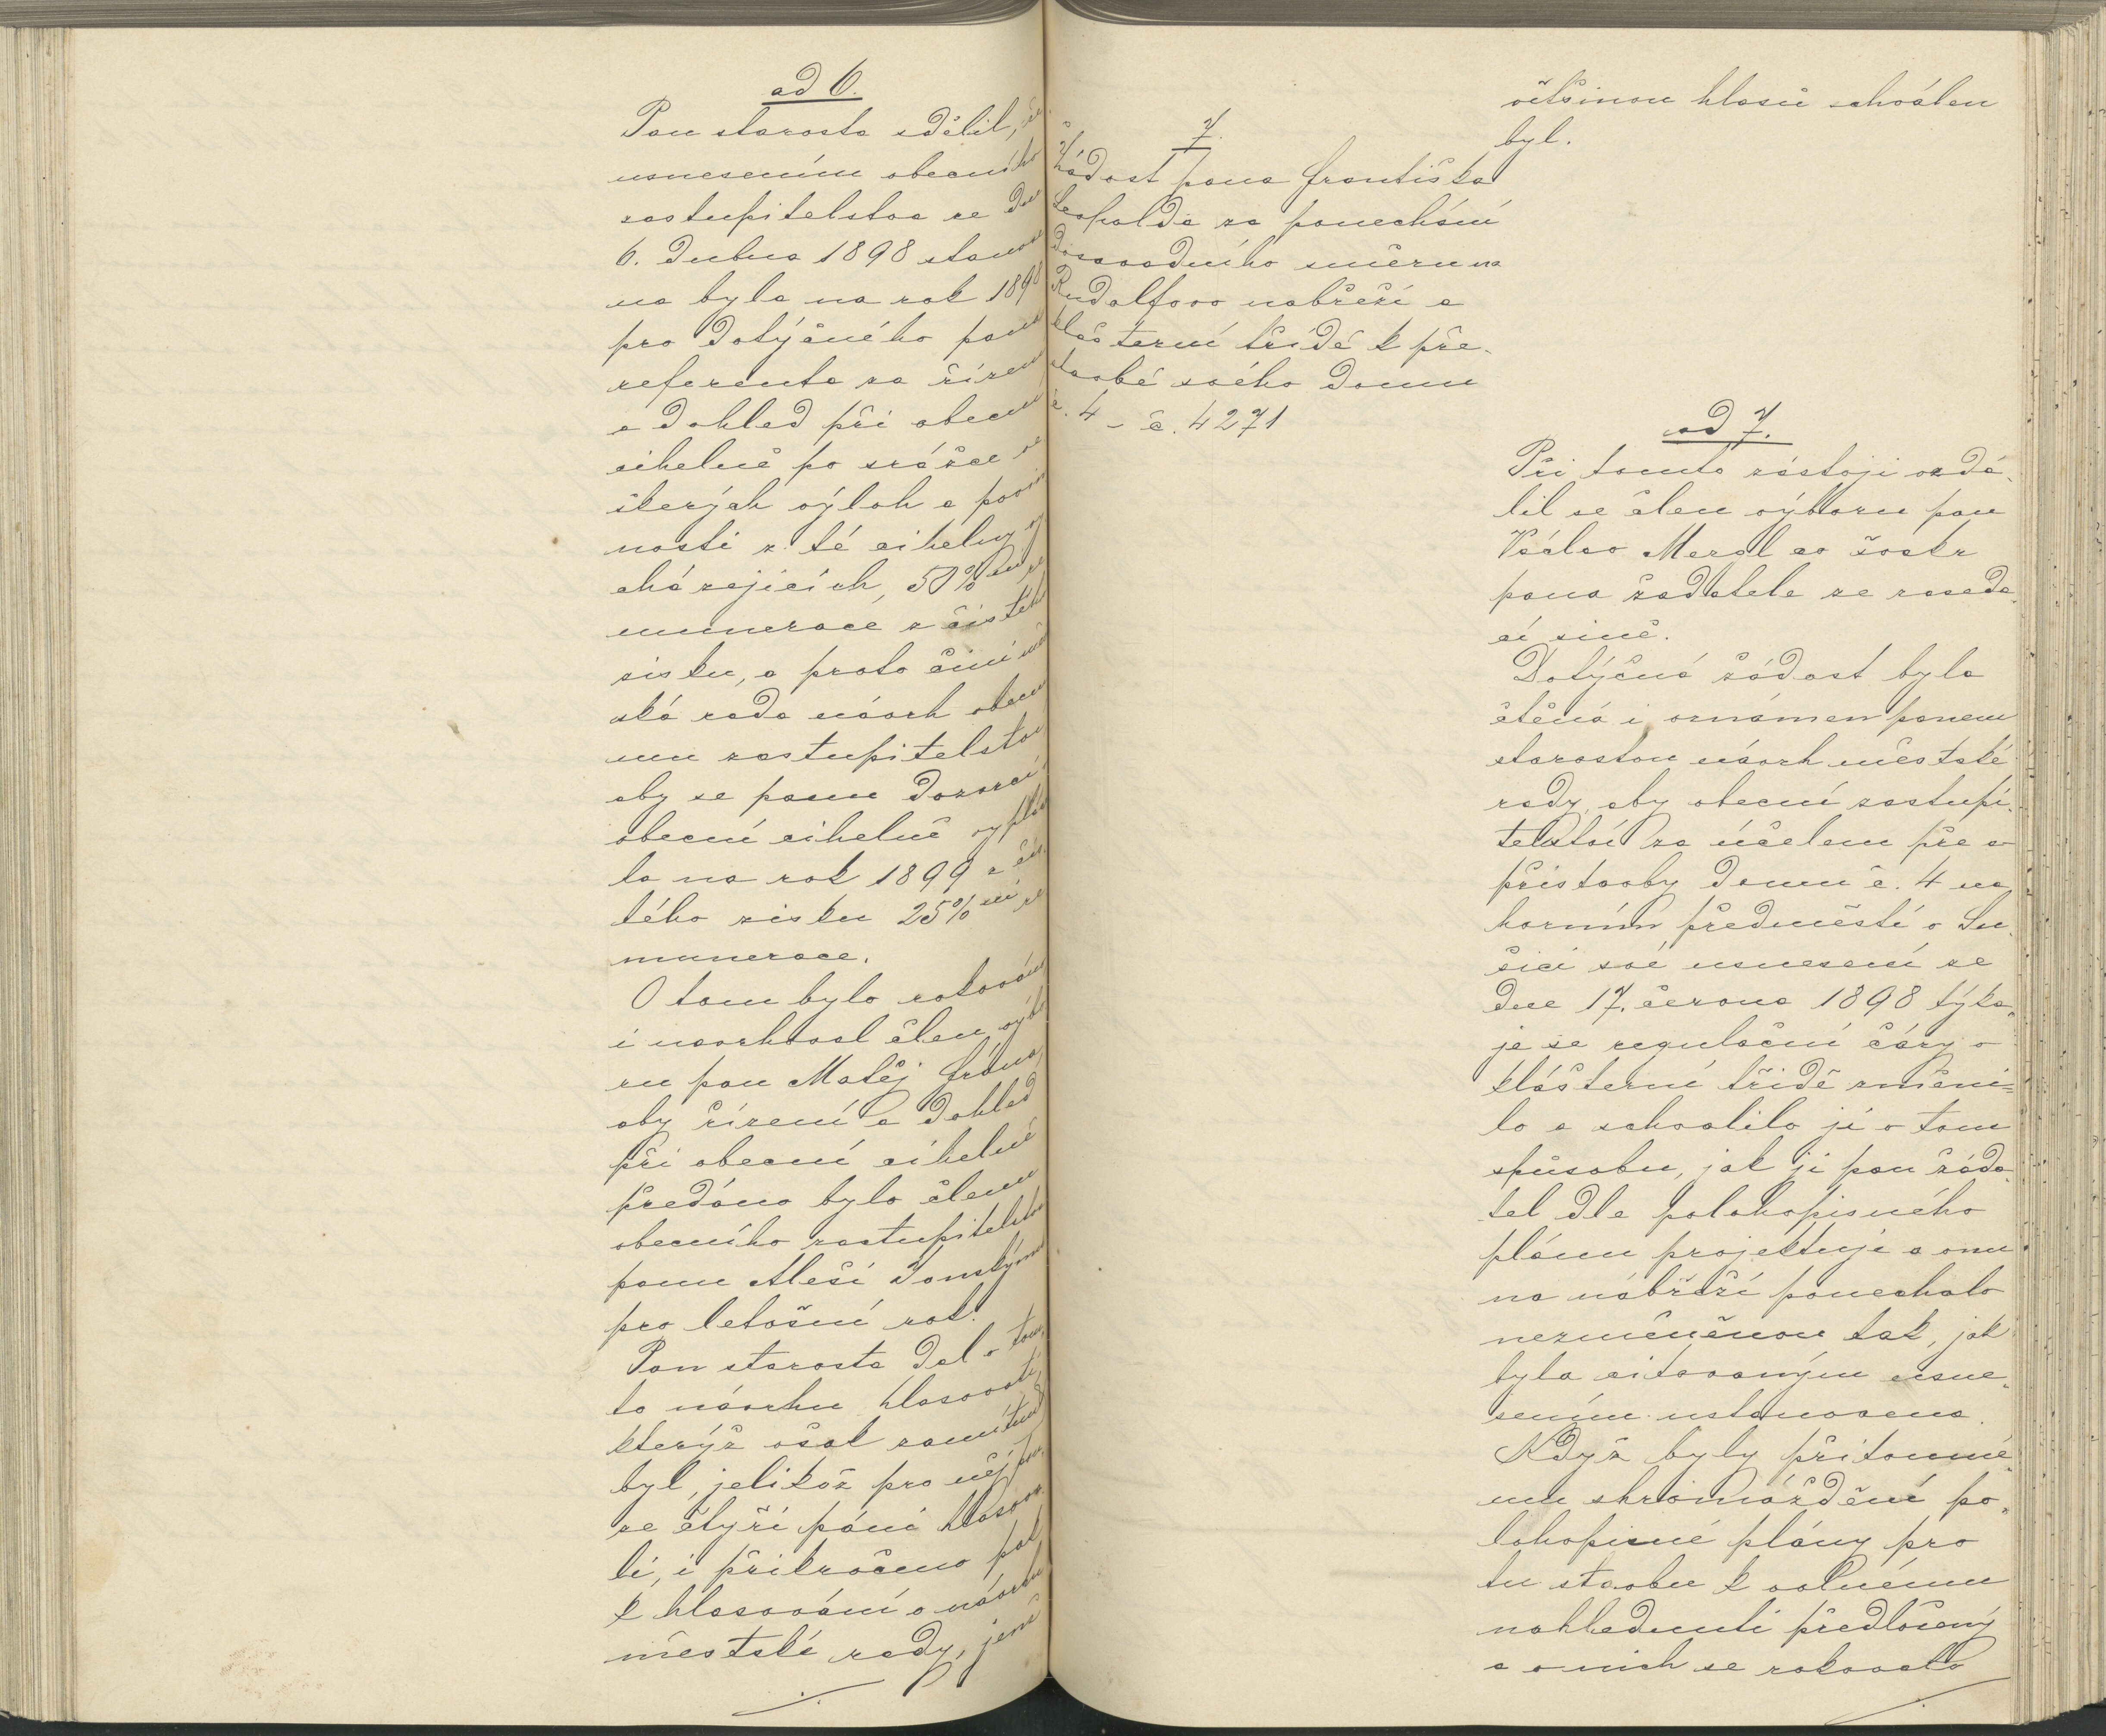 ad 6.
Pan starosta sdělil, že
usnesením obecního
zastupitelstva ze dne
6. dubna 1898 stanove
na byla na rok 1898
pro dotyčného pana
referenta za řízení
a dohled při obecní
cihelně po srážce ve
škerých výloh a povin
ností z té cihelny vy
cházejících, 50% ní re
munerace z čistého
zisku, a proto činí měst
ská rada návrh obecní
mu zastupitelstvu
aby se panu dozorci
obecní cihelně vyplá
la na rok 1899 z čis
tého zisku 25% ní re
munerace.
O tom bylo rokováno
i navrhoval člen výbo
ru pan Matěj Frána,
aby řízení a dohled
při obecní cihelně
předáno bylo členu
obecního zastupitelstva
panu Aleši
pro letošní rok.
Pan starosta dal o tom
to návrhu hlasovati,
kterýž však zamítnut
byl, jelikož pro něj pou
ze čtyři páni hlasova
li, i přikročeno pak
k hlasování o návrhu
městské rady, jenž
7.
Žádost pana Františka
Leopolda za ponechání
dosavadního směru na
Rudolfovo nábřeží a
klášterní třídě k pře-
stavbě svého domu
č. 4 – č. 4271
většinou hlasů schválen
byl.
ad 7.
Při tomto zástoji vzdá-
lil se člen výboru pan
Václav Mercl co švakr
pana žadatele ze zaseda-
cí síně.
Dotyčná žádost byla
čtěná i oznámen panem
starostou návrh městské
rady, aby obecní zastupi-
telství za účelem pře a
přístavby domu č. 4 na
horním předměstí v Su-
šici své usnesení ze
dne 17. června 1898 týka-
je se regulační čáry v
klášterní třídě změni-
lo a schválilo ji v tom
spůsobu, jak ji pan žáda-
tel dle polohopisného
plánu projektuje a onu
na nábřeží ponechalo
nezměněnou tak, jak
byla citovaným usne-
sením ustanovena.
Když byly přítomné-
mu shromáždění po-
lohopisné plány pro
tu stavbu k volnému
nahlednutí předloženy
a o nich se rokovalo